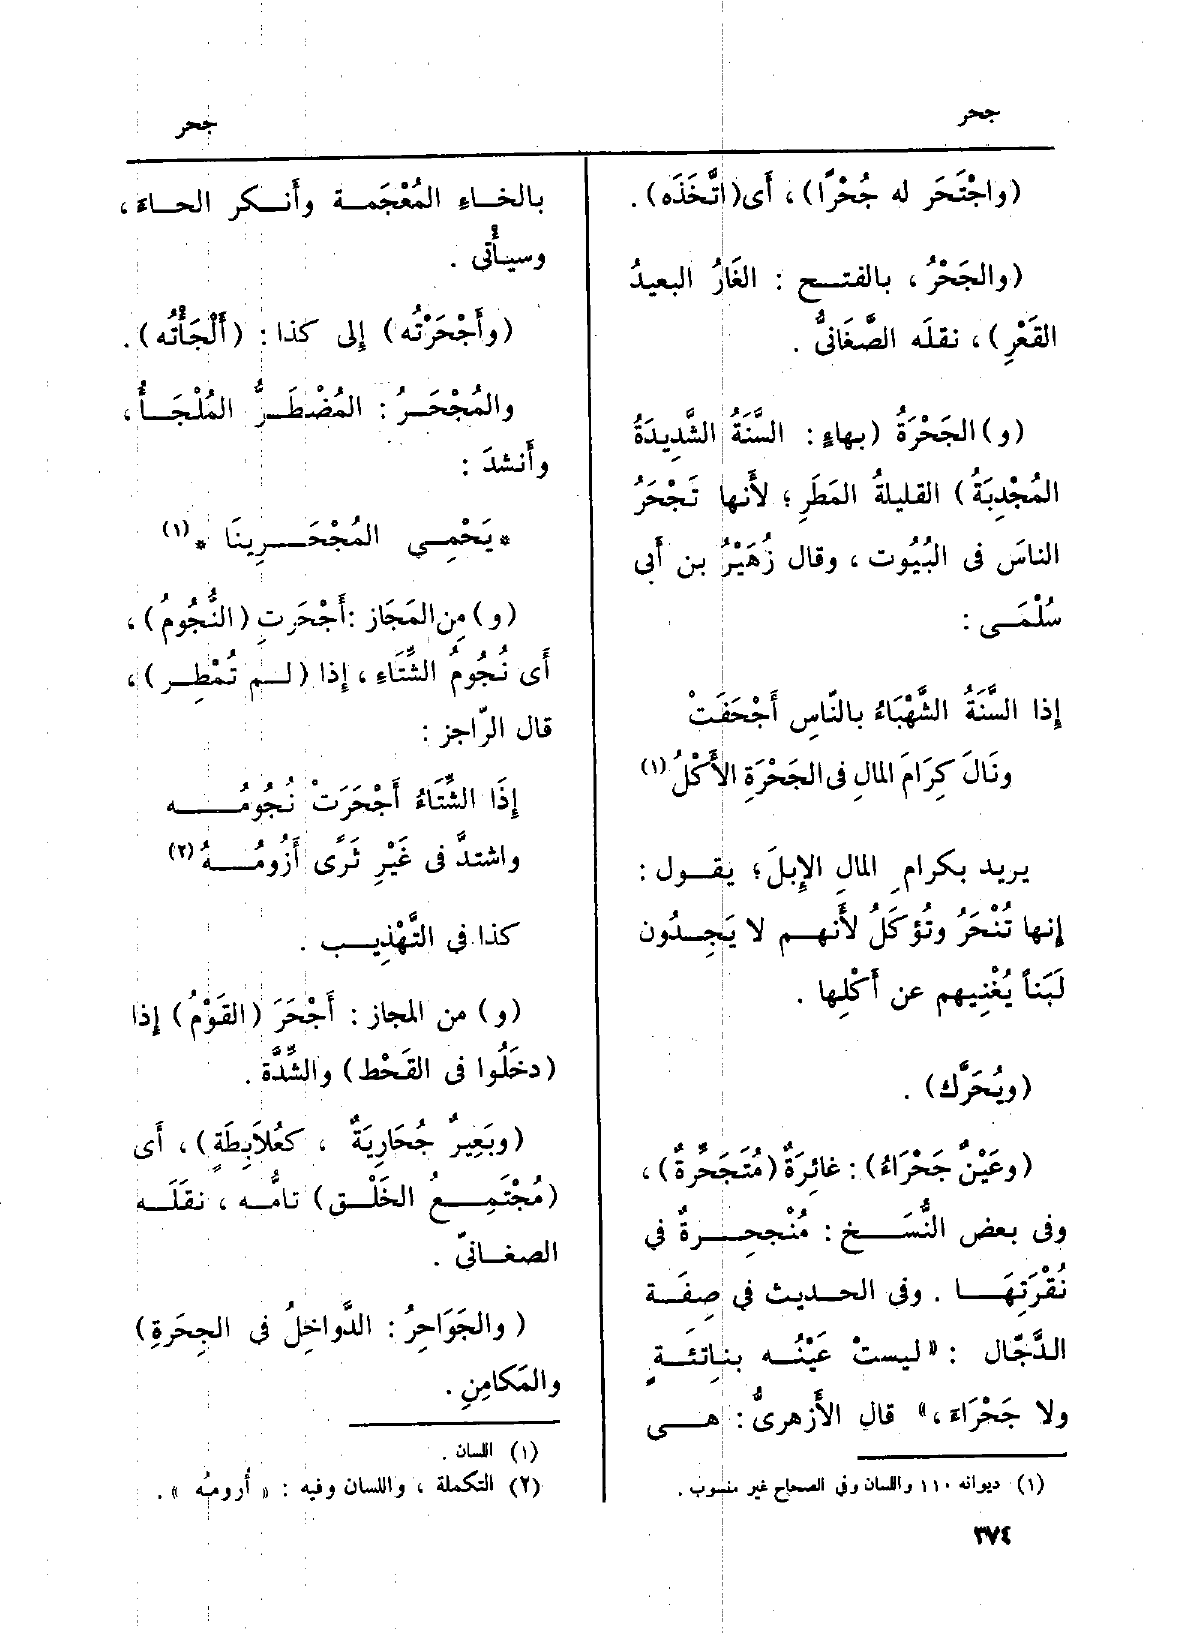 جحر
جحر
(واجْتَحَر له جُحْرًا)، أَى (اتَّخَذَه).
(والجَحْرُ، بالفتح : الغَارُ البعيدُ
القَعْرِ)، نقلَه الصَّغَانىُّ .
(و) الجَحْرَةُ (بهاءٍ : السَّنَةُ الشَّدِيدَةُ
المُجْدِبَةُ) القليلةُ المَطَرِ ؛ لأَنها تَجْحَرُ
الناسَ فى البُيُوت ، وقال زُهَيْرُ بن أَبى
سُلْمَى :
إذا السَّنَةُ الشَّهْبَاءُ بالنّاسِ أَجْحَفَتْ
ونَالَ كِرَامَ المالِ فى الجَحْرَةِ الأَكْلُ (١)
يريد بكرام المالِ الإِبلَ ؛ يقول :
إنها تُنْحَرُ وتُؤكَلُ لأَنهم لا يَجِدُون
لَبَناً يُغْنِيهم عن أَكْلِها .
(ويُحَرَّك) .
(وعَيْنٌ جَحْرَاءُ) : غائرَةٌ (مُتَجَحِّرةٌ)،
وفى بعض النُّسَخ : مُنْجحِرةٌ فى
نُقْرَتِهَا . وفى الحديث فى صِفَة
الدَّجّال : « ليستْ عَيْنُه بناتئَةٍ
ولا جَحْرَاءَ ،» قال الأَزهرىُّ : هى
(١) ديوانه ١١٠ واللسان وفى الصحاح غير منسوب .
٣٧٤
بالخاءِ المُعْجَمة وأَنكر الحاءَ،
وسيأْتى .
(وأَجْحَرْتُه) إلى كذا : (أَلْجَأْتُه) .
والمُجْحَرُ : المُضْطَرُّ المُلْجَأُ،
وأَنشدَ :
* يَحْمِى المُجْحَرِينَا * (١)
(و) مِن المَجَاز : أَجْحَرتِ (النُّجُومُ)،
أَى نُجُومُ الشِّتَاءِ ، إذا (لم تُمْطِر)،
قال الرّاجز :
إذَا الشِّتَاءُ أَجْحَرَتْ نُجُومُه
واشتدَّ فى غَيْرِ ثَرًى أَزُومُهُ (٢)
كذا فى التَّهْذِيب .
(و) من المجاز : أَجْحَرَ (القَوْمُ) إذا
(دخَلُوا فى القَحْط) والشِّدَّة .
(وبَعِيرٌ جُحَارِيَةٌ ، كعُلاَبِطَةٍ)، أَى
(مُجْتَمِعُ الخَلْق) تامُّه ، نقَلَه
الصغانىّ .
( والجَوَاحِرُ : الدَّواخِلُ فى الجِحَرةِ)
والمَكامِنِ .
(١) اللسان .
(٢) التكملة ، واللسان وفيه : « أرومُه » .